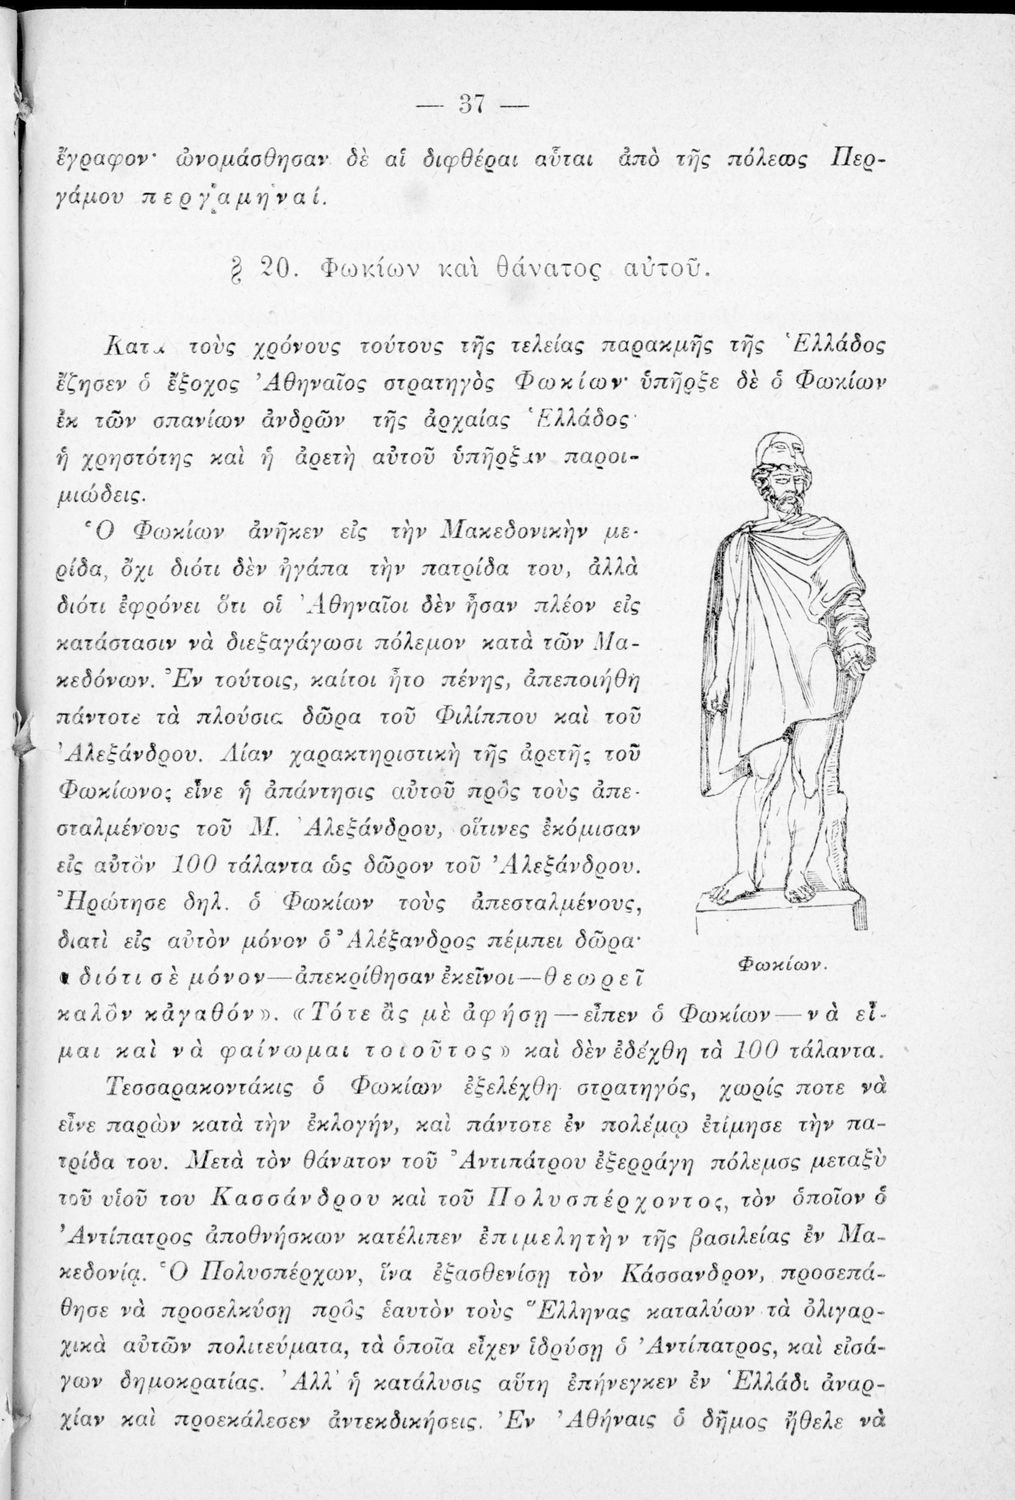 — 37 —
ἔγραφον· ὠνομάσθησαν δὲ αἱ διφθέραι αὗται ἀπὸ τῆς πόλεως Περ-
γάμου περγαμηναί.
§ 20. Φωκίων καὶ θάνατος αὐτοῦ.
Κατὰ τοὺς χρόνους τούτους τῆς τελείας παρακμῆς τῆς Ἑλλάδος
ἔζησεν ὁ ἔξοχος Ἀθηναῖος στρατηγὸς Φωκίων· ὑπῆρξε δὲ ὁ Φωκίων
ἐκ τῶν σπανίων ἀνδρῶν τῆς ἀρχαίας Ἑλλάδος·
ἡ χρηστότης καὶ ἡ ἀρετὴ αὐτοῦ ὑπῆρξαν παροι-
μιώδεις.
Ὁ Φωκίων ἀνῆκεν εἰς τὴν Μακεδονικὴν με-
ρίδα, ὄχι διότι δὲν ἠγάπα τὴν πατρίδα του, ἀλλὰ
διότι ἐφρόνει ὅτι οἱ Ἀθηναῖοι δὲν ἦσαν πλέον εἰς
κατάστασιν νὰ διεξαγάγωσι πόλεμον κατὰ τῶν Μα-
κεδόνων. Ἐν τούτοις, καίτοι ἦτο πένης, ἀπεποιήθη
πάντοτε τὰ πλούσια δῶρα τοῦ Φιλίππου καὶ τοῦ
Ἀλεξάνδρου. Λίαν χαρακτηριστικὴ τῆς ἀρετῆς τοῦ
Φωκίωνος εἶνε ἡ ἀπάντησις αὐτοῦ πρὸς τοὺς ἀπε-
σταλμένους τοῦ Μ. Ἀλεξάνδρου, οἵτινες ἐκόμισαν
εἰς αὐτὸν 100 τάλαντα ὡς δῶρον τοῦ Ἀλεξάνδρου.
Ἠρώτησε δηλ. ὁ Φωκίων τοὺς ἀπεσταλμένους,
διατὶ εἰς αὐτὸν μόνον ὁ Ἀλέξανδρος πέμπει δῶρα·
«διότι σὲ μόνον—ἀπεκρίθησαν ἐκεῖνοι—θεωρεῖ
Φωκίων.
καλὸν κἀγαθόν». «Τότε ἂς μὲ ἀφήσῃ—εἶπεν ὁ Φωκίων—νὰ εἶ-
μαι καὶ νὰ φαίνωμαι τοιοῦτος» καὶ δὲν ἐδέχθη τὰ 100 τάλαντα.
Τεσσαρακοντάκις ὁ Φωκίων ἐξελέχθη στρατηγός, χωρίς ποτε νὰ
εἶνε παρὼν κατὰ τὴν ἐκλογήν, καὶ πάντοτε ἐν πολέμῳ ἐτίμησε τὴν πα-
τρίδα του. Μετὰ τὸν θάνατον τοῦ Ἀντιπάτρου ἐξερράγη πόλεμος μεταξὺ
τοῦ υἱοῦ του Κασσάνδρου καὶ τοῦ Πολυσπέρχοντος, τὸν ὁποῖον ὁ
Ἀντίπατρος ἀποθνήσκων κατέλιπεν ἐπιμελητὴν τῆς βασιλείας ἐν Μα-
κεδονίᾳ. Ὁ Πολυσπέρχων, ἵνα ἐξασθενίσῃ τὸν Κάσσανδρον, προσεπά-
θησε νὰ προσελκύσῃ πρὸς ἑαυτὸν τοὺς Ἕλληνας καταλύων τὰ ὀλιγαρ-
χικὰ αὐτῶν πολιτεύματα, τὰ ὁποῖα εἶχεν ἱδρύσῃ ὁ Ἀντίπατρος, καὶ εἰσά-
γων δημοκρατίας. Ἀλλ' ἡ κατάλυσις αὕτη ἐπήνεγκεν ἐν Ἑλλάδι ἀναρ-
χίαν καὶ προεκάλεσεν ἀντεκδικήσεις. Ἐν Ἀθήναις ὁ δῆμος ἤθελε νὰ